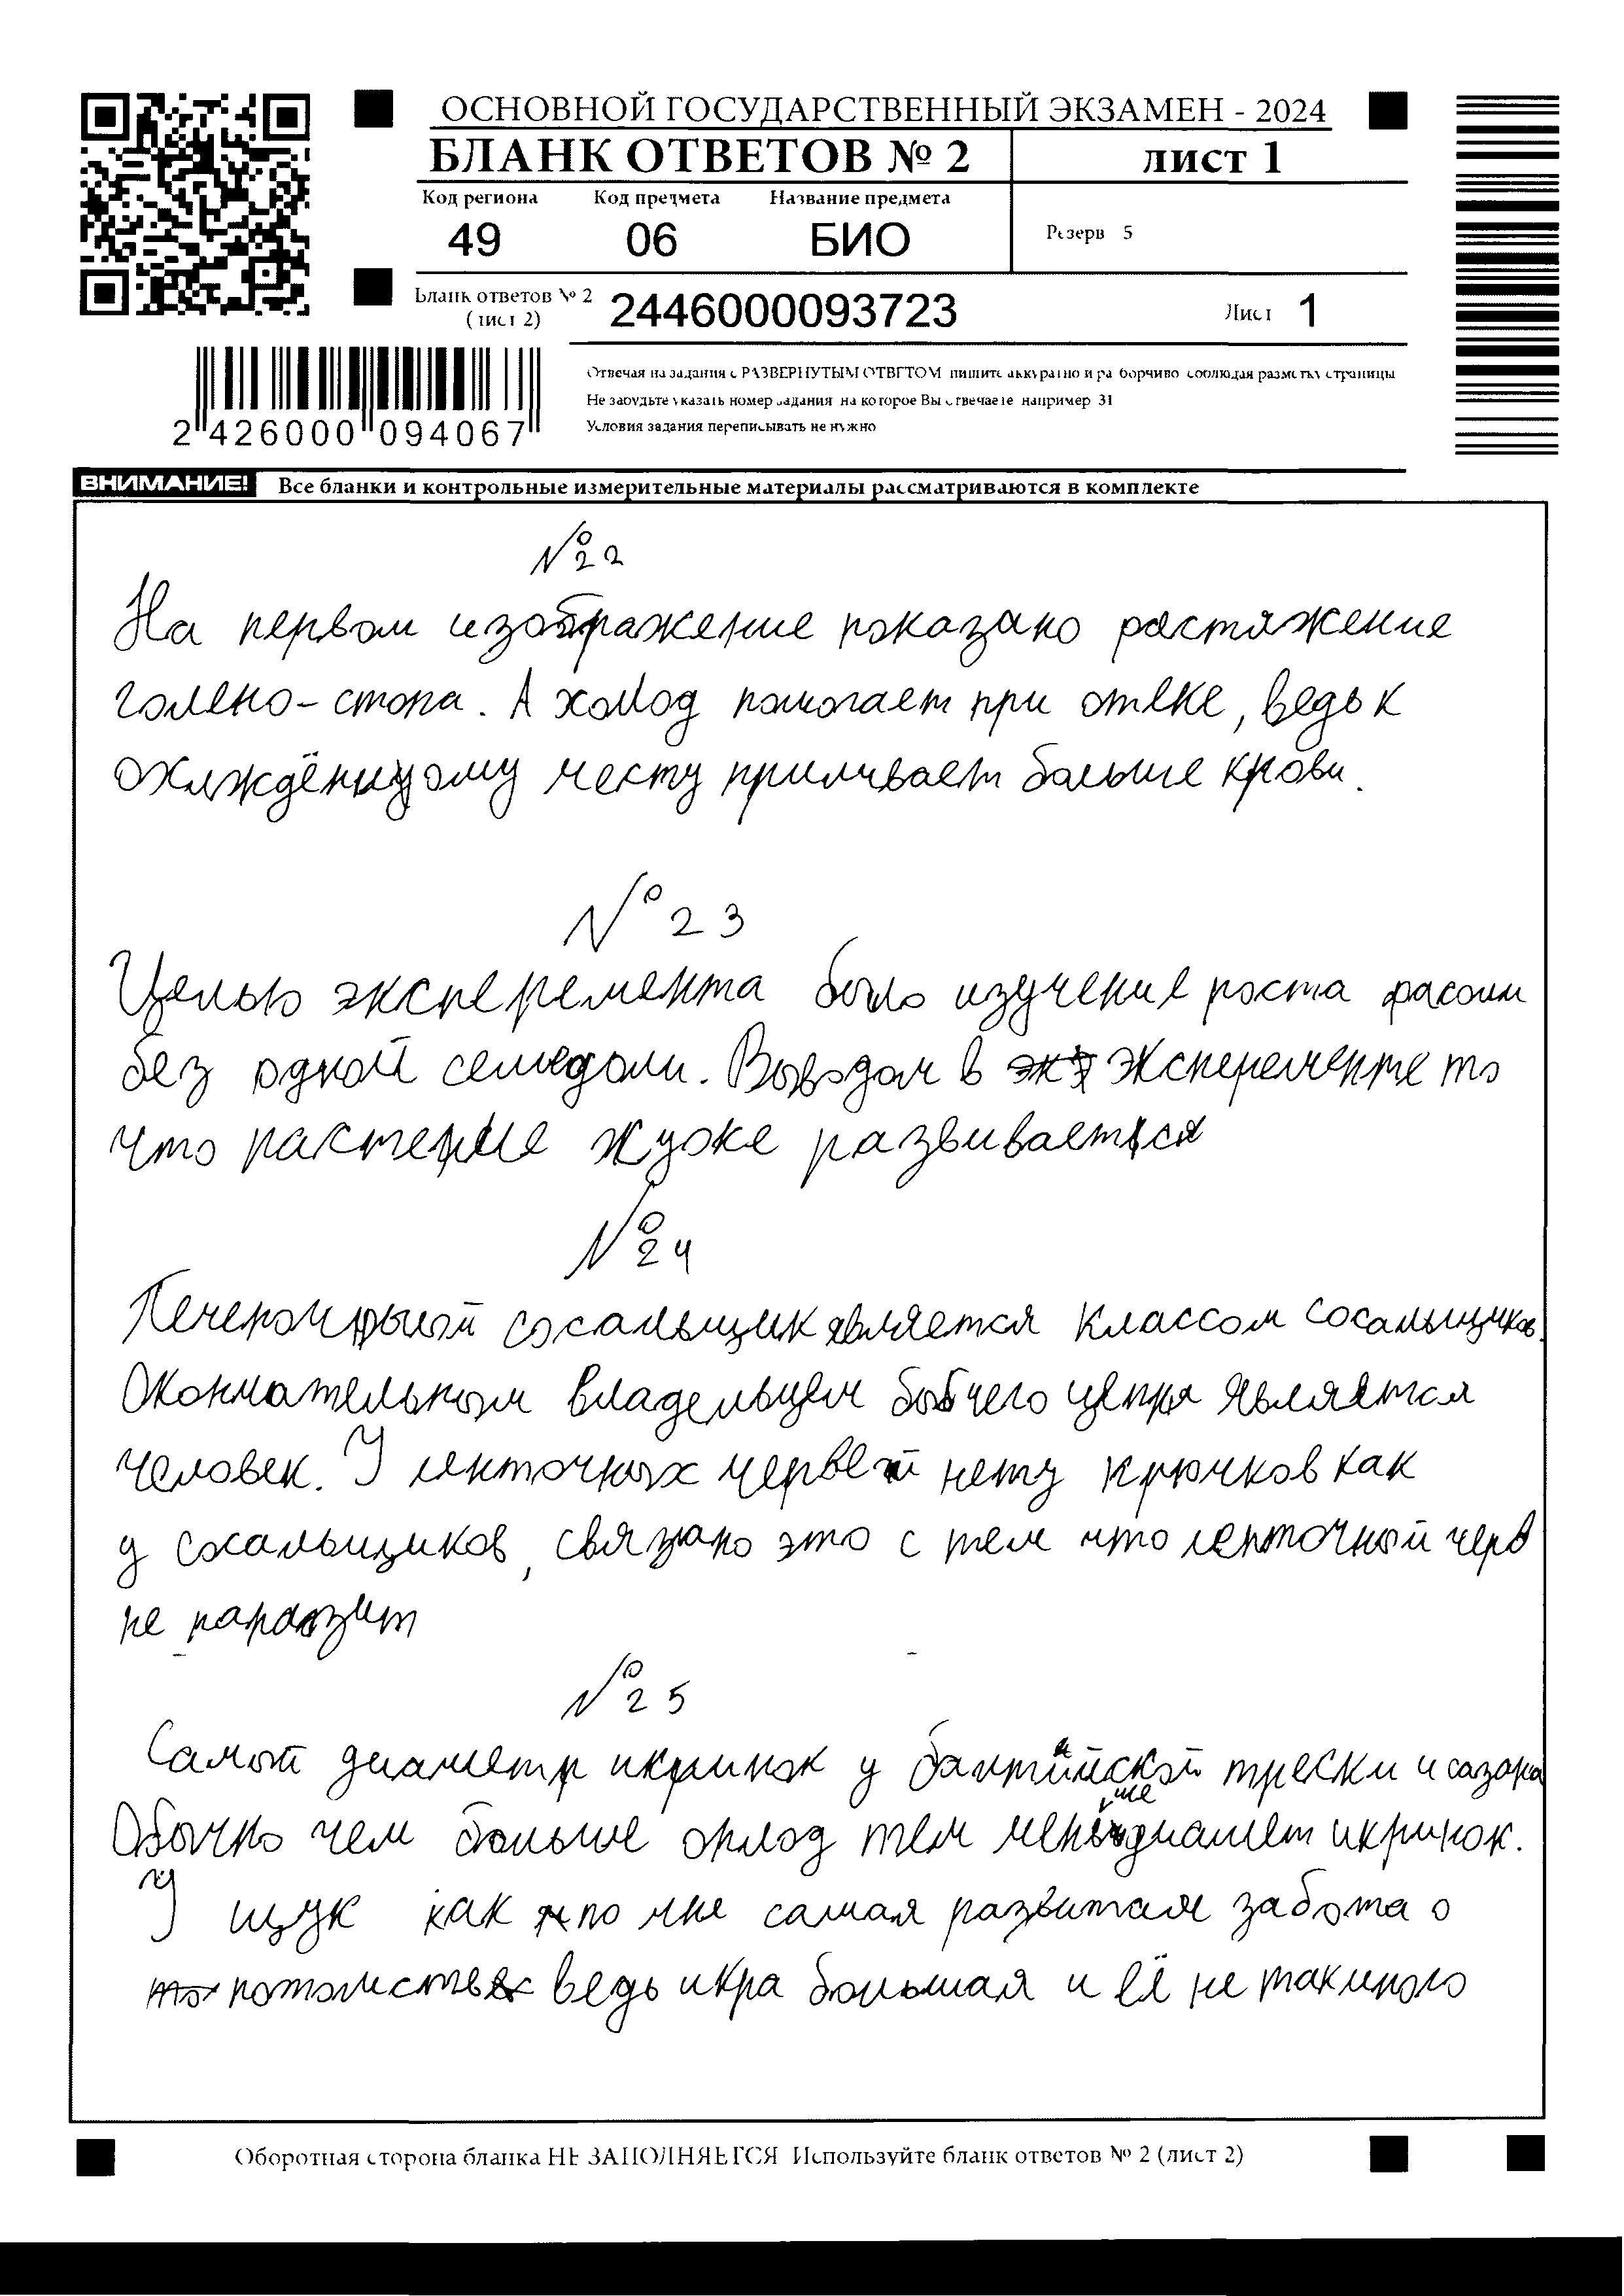 ОСНОВНОЙ ГОСУДАРСТВЕННЫЙ ЭКЗАМЕН - 2024
БЛАНК ОТВЕТОВ № 2 лист 1
Код региона Код предмета Название предмета
49 06 БИО Резерв 5
Бланк ответов № 2 (лист 2) 2446000093723 Лист 1
2 426000 094067
Отвечая на задания с РАЗВЕРНУТЫМ ОТВЕТОМ пишите аккуратно и разборчиво соблюдая разметку страницы
Не забудьте указать номер задания на которое Вы отвечаете например 31
Условия задания переписывать не нужно
ВНИМАНИЕ! Все бланки и контрольные измерительные материалы рассматриваются в комплекте
№22
На первом изображение показано растяжение
голено-стопа. А холод помогает при отёке, ведь к
охлаждённому месту приливает больше крови.
№ 23
Целью эксперемента было изучение роста фасоли
без одной семедоли. Выводом в эксперементе то
что растение хуже развивается
№24
Печеночный сосальщик является классом сосальщиков
Окончательном владельцем бычего цепня является
человек. У ленточных червей нету крючков как
у сосальщиков, связано это с тем что ленточной черв
не паразит
№25
Самой диаметр икринок у балтийской трески и сазана
Обычно чем больше оплод тем меньше диамет икринок.
У щук как по мне самая развитая забота о
потомстве ведь икра большая и её не так много
Оборотная сторона бланка НЕ ЗАПОЛНЯЕТСЯ Используйте бланк ответов № 2 (лист 2)